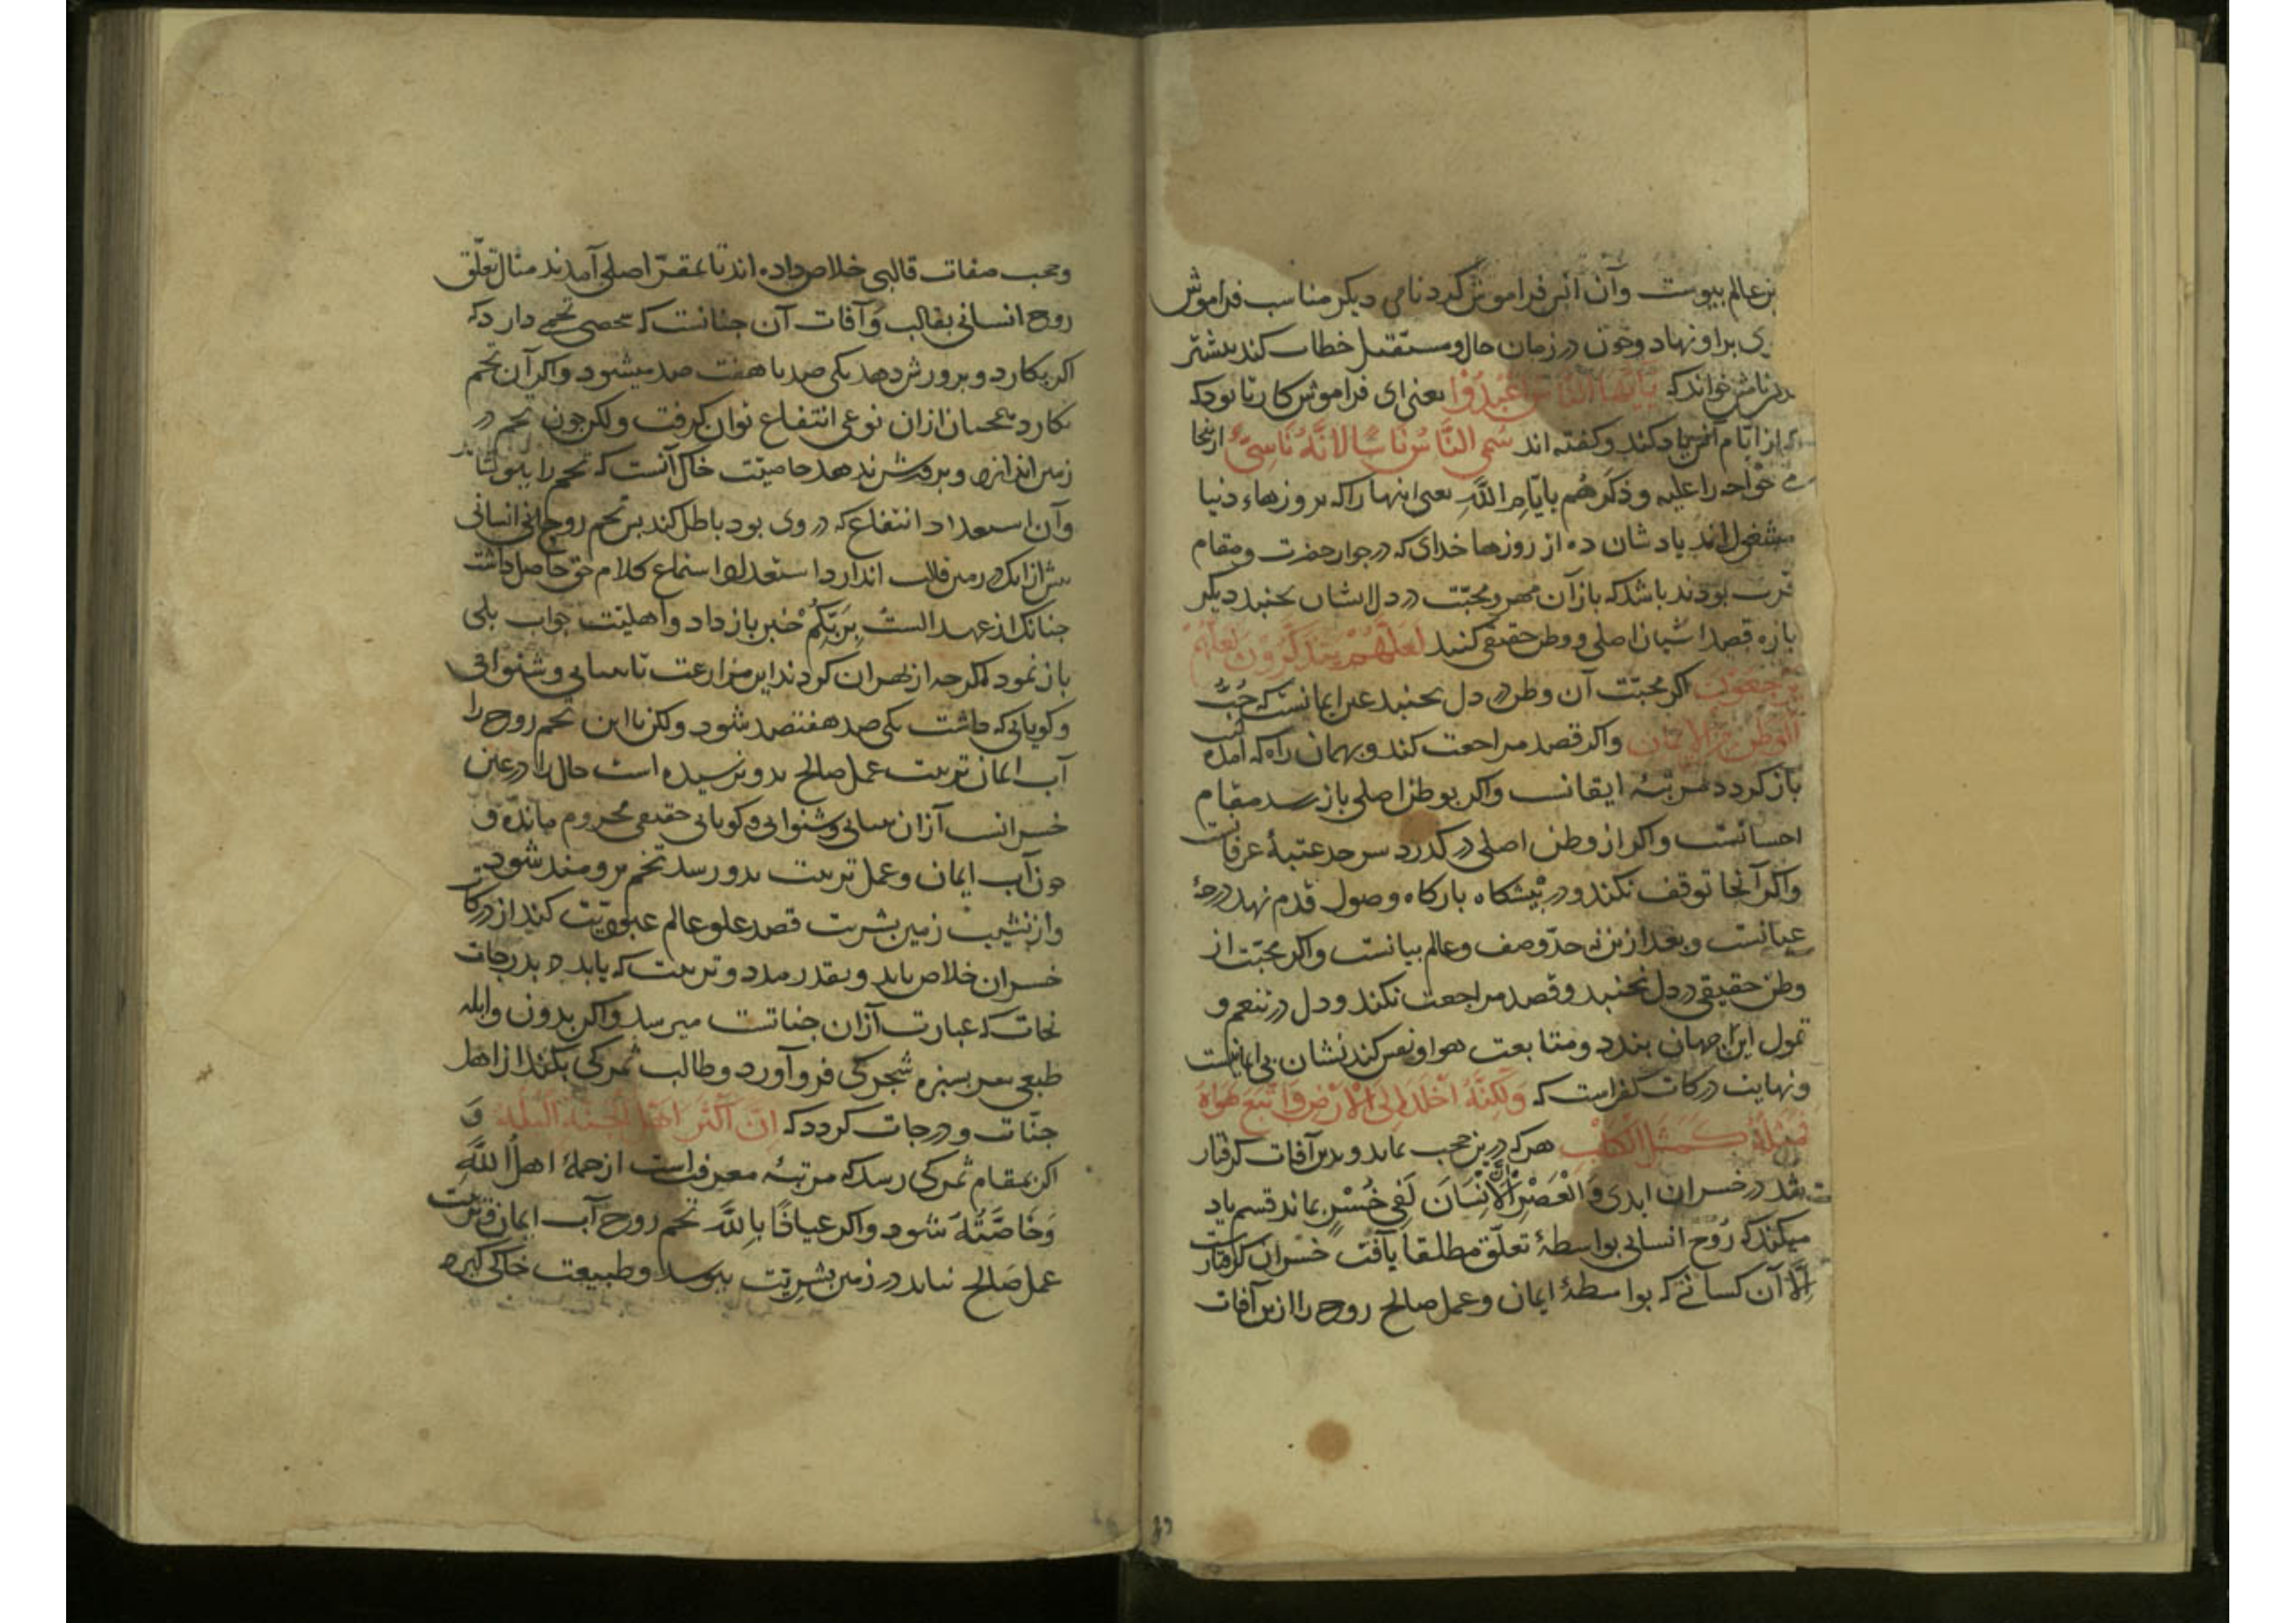 عالم پیوست وآن انس فراموش کرد نامی دیکر مناسب فراموش
براونهاد وچون در زمان حال ومستقبل خطاب کند بیشتر
نامش خواند که یَاَیُّهَا النَّاسُ اعْبُدُوا یعنی ای فراموش کار تا بود که
از ایّام انس یاد کند وکفته اند سُمِّی النَّاسُ نَاسًا لِاَنَّهُ نَاسِیٌ ازینجا
خواجه را علیه وذکّرهُم بایّامِ اللهِ یعنی اینها را که بروزهاء دنیا
مشغول اند یادشان ده از روزها خدای که در جوار حضرت ومقام
قربت بودند باشد که باز آن مهر ومحبّت در دل ایشان بجنبد دیکر
باره قصد اشیان اصلی ووطن حقیقی کنند لَعَلَّهُمْ یَتَذَکَّرُونَ لَعَلَّهُمْ
یَرْجِعُونَ اکر محبّت آن وطن در دل بجنبد عین ایمانست که حُبُّ
الْوَطَنِ مِنَ الْاِیمَانِ واکر قصد مراجعت کند وبهمان راه که آمده است
باز کردد مرتبهٔ ایقانست واکر بوطن اصلی باز رسد مقام
احسانست واکر از وطن اصلی در کذرد سرحد عتبهٔ عرفانست
واکر آنجا توقف نکند ودر پیشکاه بارکاه وصول قدم نهد درجهٔ
عیانست وبعد ازین نه حدّ وصف وعالم بیانست واکر محبّت از
وطن حقیقی در دل نجنبد وقصد مراجعت نکند ودل در تنعم و
تمول این جهان بندد ومتابعت هوا ونفس کند نشان بی ایمانیست
ونهایت درکات کفر است که وَلٰکِنَّهُ اَخْلَدَ اِلَی الْاَرْضِ وَاتَّبَعَ هَوٰاهُ
فَمَثَلُهُ کَمَثَلِ الْکَلْبِ هرکه درین حجب بماند وبدین آفات کرفتار
شد در خسران ابدی وَالْعَصْرِ اِنَّ الْاِنْسَانَ لَفِی خُسْرٍ بماند قسم یاد
میکند که روح انسانی بواسطهٔ تعلّق مطلقا بآفت خسران کرفتارست
اِلّا آن کسانی که بواسطهٔ ایمان وعمل صالح روح را ازین آفات
وحجب صفات قالبی خلاص داده اند تا بمقرّ اصلی آمدند مثال تعلّق
روح انسانی بقالب وآفات آن چنانست که شخصی تخمی دارد که
اکر بکارد وپرورش دهد یکی صد یا هفت صد میشود واکر آن تخم
نکارد همچنان ازان نوعی انتفاع توان کرفت ولکن چون تخم در
زمین اندازد وپرورش ندهد خاصیّت خاک آنست که تخم را بپوساند
وآن استعداد انتفاع که در وی بود باطل کند پس تخم روحانی انسانی
پیش ازانک در زمین قالب اندازد استعداد استماع کلام حق حاصل داشت
چنانک از عهد الستُ بِرَبِّکُمْ خبر باز داد واهلیّت جواب بلی
باز نمود اکرچه از بهر ان کردند این مزارعت تا بینایی وشنوائی
وکویائی که داشت یکی صد هفتصد شود ولکن تا این تخم روح را
آب ایمان تربیت عمل صالح بدو نرسیده است حال را در عین
خسرانست ازان بینائی وشنوایی وکویائی حقیقی محروم مانده و
چون آب ایمان وعمل تربیت بدو رسد تخم برومند شود
واز نشیب زمین بشریت قصد علو عالم عبودیّت کند از درکات
خسران خلاص یابد وبقدر مدد وتربیت که یابد بدرجات
نجات که عبارت ازان جناتست میرسد واکر بدون وابله
طبعی سر بسبزه شجرکی فرو آورد وطالب ثمرکی بکند از اهل
جنّات ودرجات کردد که اِنَّ اَکْثَرَ اَهْلِ الْجَنَّةِ الْبُلْهُ وَ
اکر بمقام ثمرکی رسد که مرتبهٔ معرفتست از جملهٔ اهلُ اللهِ
وَخَاصَّتُهُ شود واکر عیاذًا بِاللهِ تخم روح آب ایمان وتربیت
عمل صالح نیابد در زمین بشریّت بپوسد وطبیعت خاکی کیرد